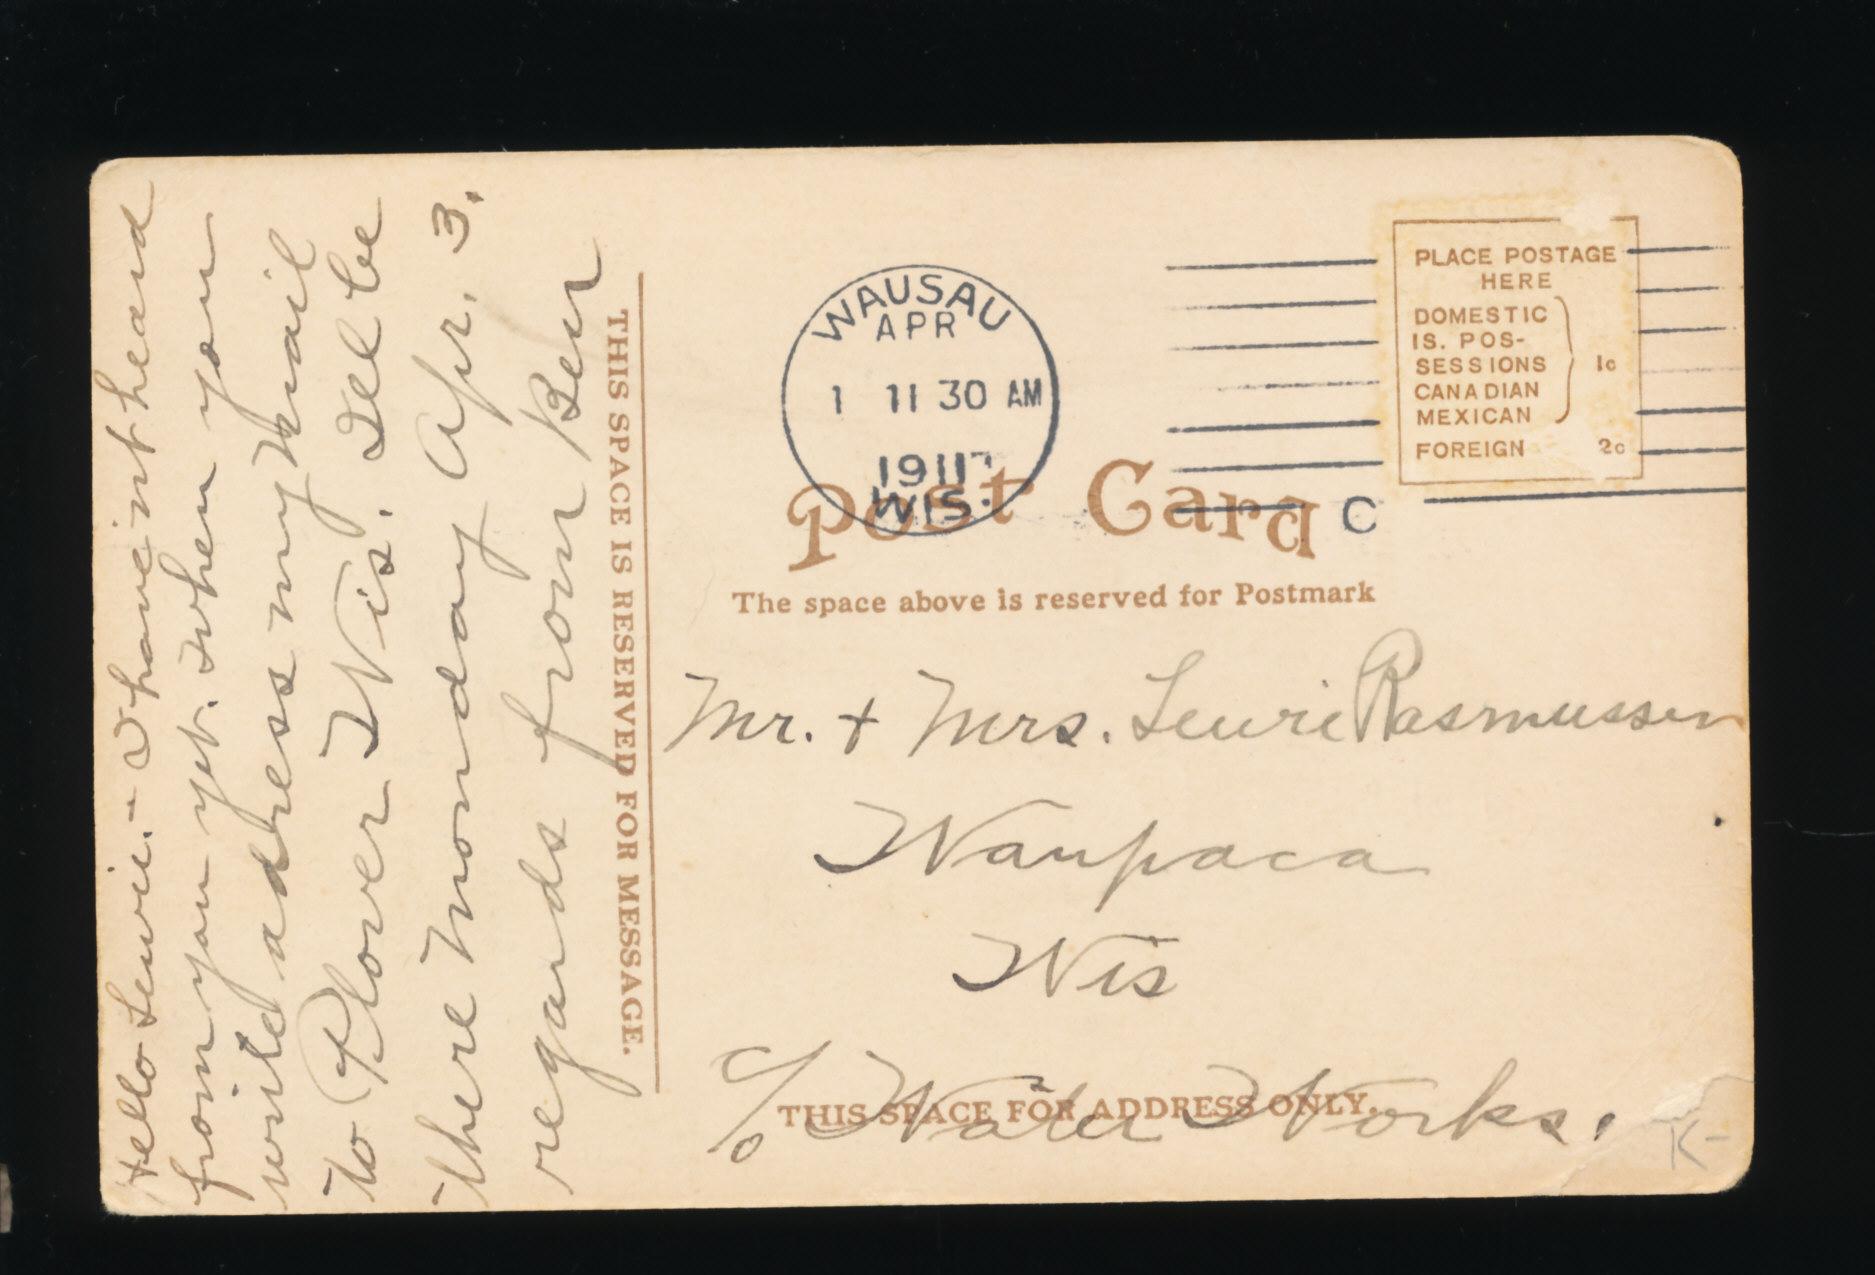 Hello Lewie. - I have'nt heard
from you yet. When you
write address my mail
to Plover Wis. Ill be
there Monday Apr. 3.
regards from Ben
THIS SPACE IS RESERVED FOR MESSAGE.
WAUSAU
APR
1 11 30 AM
1911
WIS.
PLACE POSTAGE
HERE
DOMESTIC
IS. POS-
SESSIONS 1c
CANADIAN
MEXICAN
FOREIGN 2c
Post Card C
The space above is reserved for Postmark
Mr. + Mrs. Lewie Rasmussen
Waupaca
Wis
c/o Water Works.
THIS SPACE FOR ADDRESS ONLY.
K-